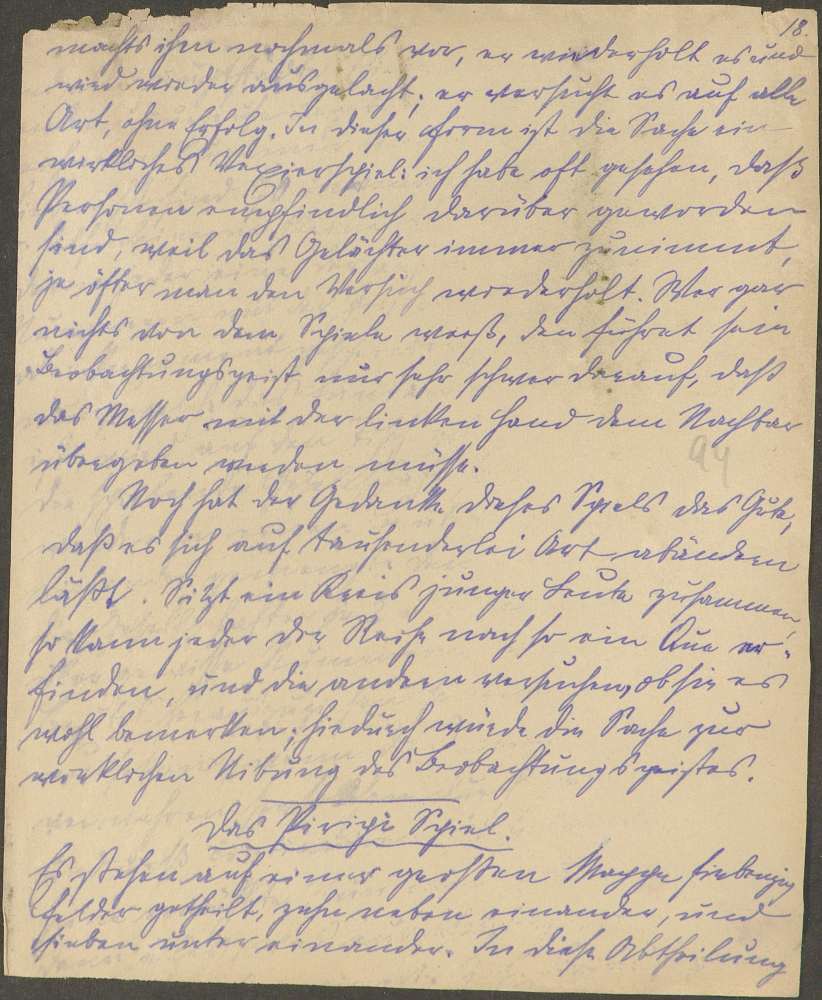 18.
machts ihm nochmals vor, er wiederholt es und
wird wieder ausgelacht; er versucht es auf alle
Art, ohne Erfolg. In dieser Form ist die Sache ein
wirkliches Vexierspiel: ich habe oft gesehen, daß
Personen empfindlich darüber geworden
sind, weil das Gelächter immer zunimmt,
je öfter man den Versuch wiederholt. Wer gar
nichts von dem Spiele weeß, den führet sein
Beobachtungsgeist nur sehr schwer darauf, daß
das Messer mit der linken Hand dem Nachbar
übergeben werden müsse.
94
Noch hat der Gedanke dieses Spiels das Gute,
daß es sich auf tausenderlei Art abändern
läßt. Sitzt ein Kreis junger Leute zusammen,
so kann jeder der Reihe nach so ein er-
finden, und die andern versuchen, ob sie es
wohl bemerken; hiedurch würde die Sache zur
wirklichen Uibung des Beobachtungsgeistes.
Das Spiel.
Es stehen auf einer großen Mappe siebenzig
Felder getheilt, zehn neben einander, und
sieben unter einander. In diese Abtheilung